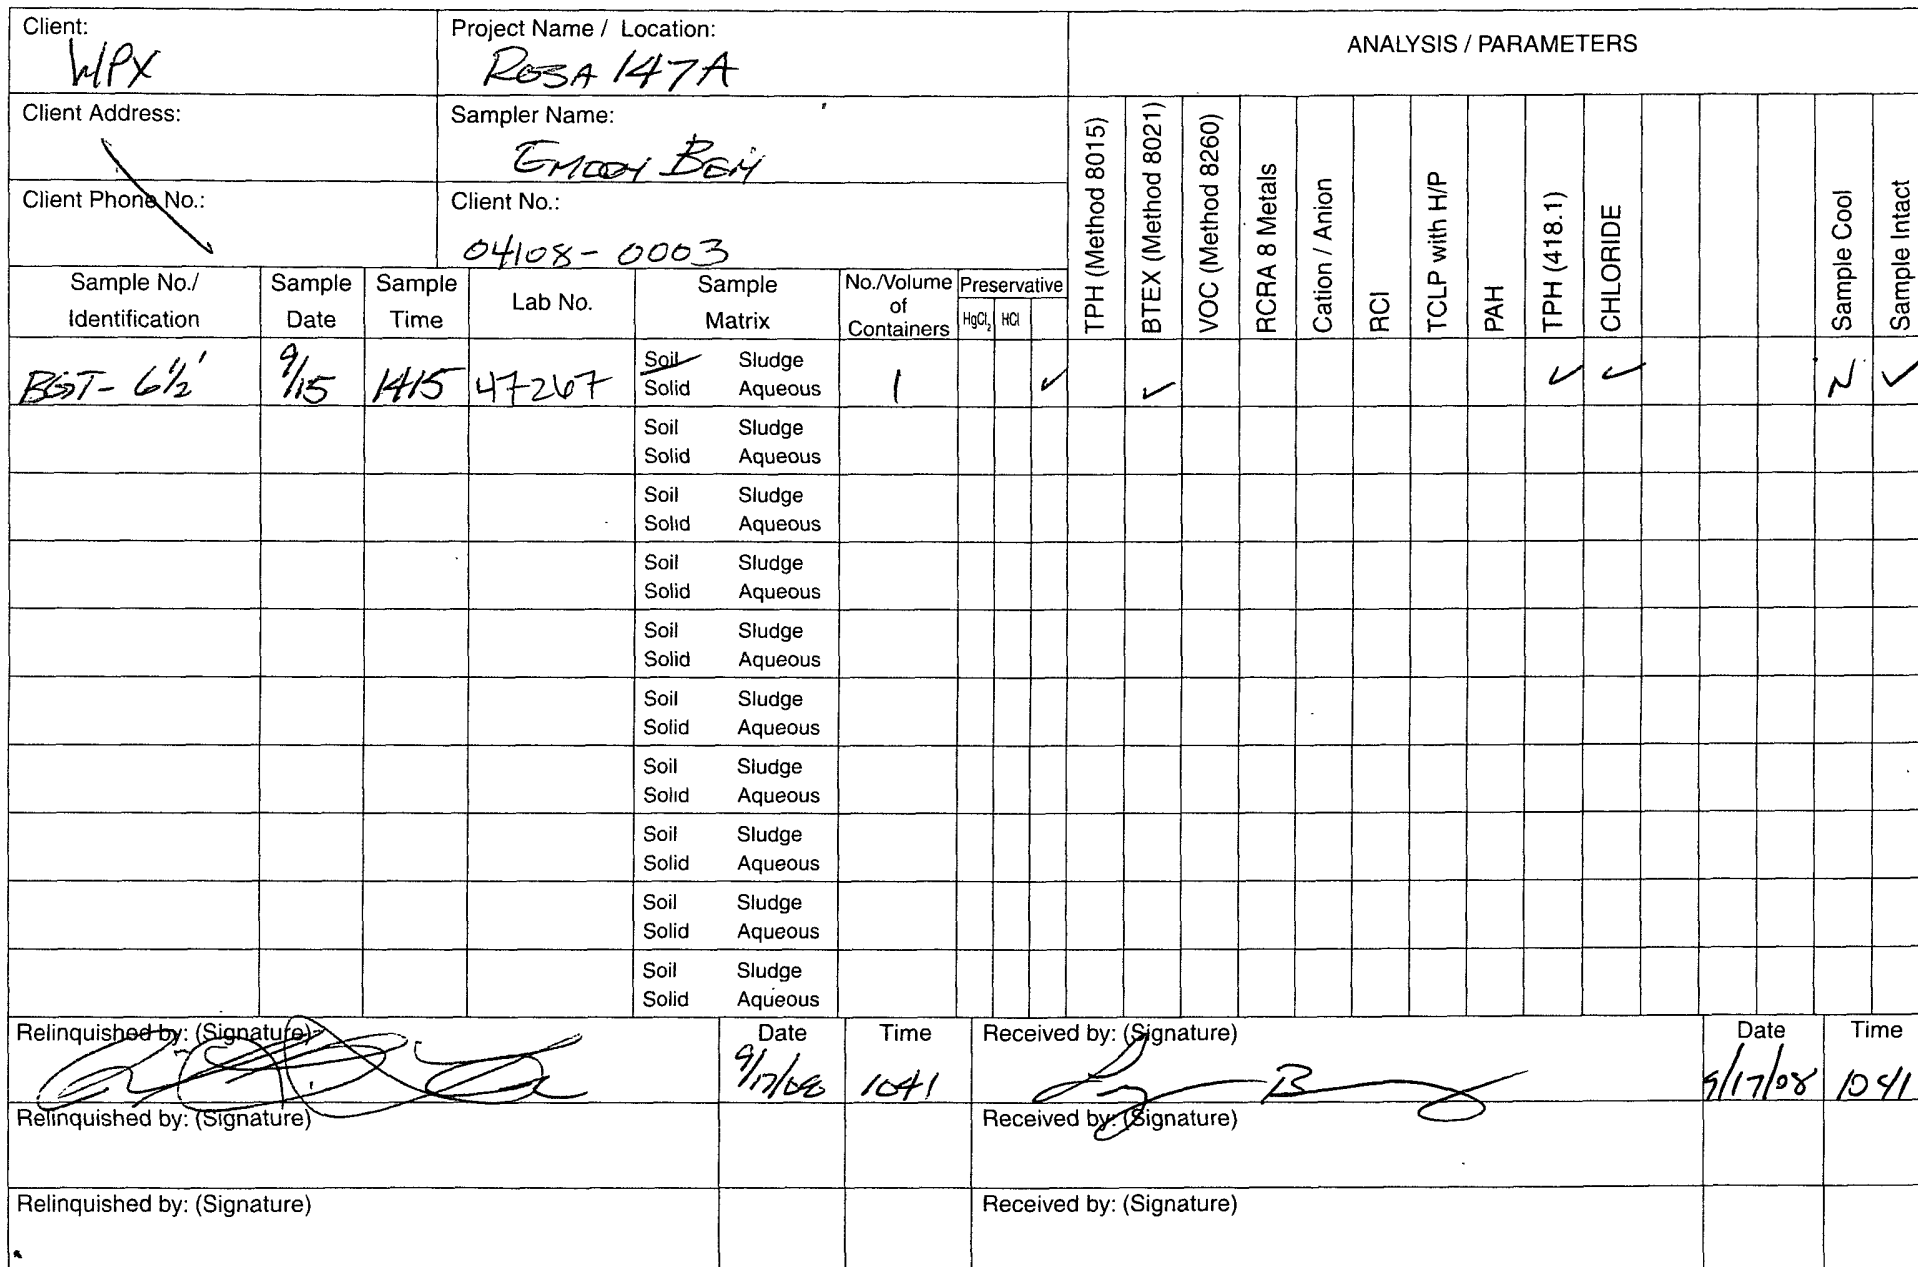 Client:
WPX
Project Name / Location:
ROSA 147A
ANALYSIS / PARAMETERS
Client Address:
Sampler Name:
Client Phone No.:
Client No.:
04108-0003
Sample No./ Identification
Sample Date
Sample Time
Lab No.
Sample Matrix
No./Volume of Containers
Preservative
HgCl2
HCl
TPH (Method 8015)
BTEX (Method 8021)
VOC (Method 8260)
RCRA 8 Metals
Cation / Anion
RCI
TCLP with H/P
PAH
TPH (418.1)
CHLORIDE
Sample Cool
Sample Intact
BGT- 6½' 9/15 1415 47267 Soil Sludge 1 ✓ ✓ ✓ ✓ N ✓
Solid Aqueous
Soil Sludge
Solid Aqueous
Soil Sludge
Solid Aqueous
Soil Sludge
Solid Aqueous
Soil Sludge
Solid Aqueous
Soil Sludge
Solid Aqueous
Soil Sludge
Solid Aqueous
Soil Sludge
Solid Aqueous
Soil Sludge
Solid Aqueous
Soil Sludge
Solid Aqueous
Relinquished by: (Signature) Date Time Received by: (Signature) Date Time
9/17/08 1041 9/17/08 1041
Relinquished by: (Signature) Received by: (Signature)
Relinquished by: (Signature) Received by: (Signature)